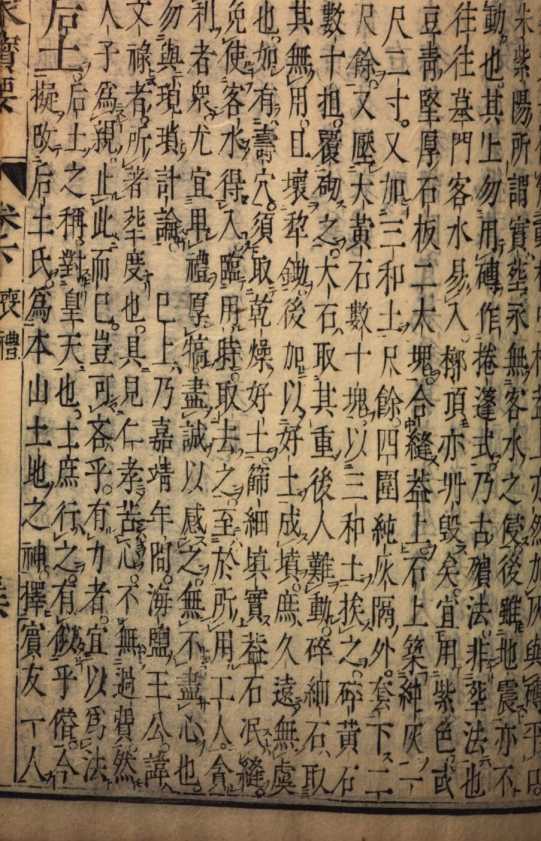 朱紫陽所謂實塟永無客水之侵後雖地震亦不
動也其上勿用磚作捲蓬式乃古殯法非塟法也
往往墓門客水易入椁頂亦坍毀矣宜用紫色或
豆青堅厚石板二大塊合縫葢上石上築純灰一
尺二寸又加三和土尺餘四圍純灰隔外套下二
尺餘又壓大黃石數十塊以三和土挨之碎黃石
數十担覆砌之大石取其重後人難動碎細石取
其無用且壞犁鋤後加以好土成墳庶久遠無虞
也如有壽穴須取乾燥好土篩細填實葢石泯縫
免使客水得入臨用時取去之至於所用工人貪
利者衆尤宜卑禮厚犒盡誠以感之無不盡心也
勿與現瑣計論 巳上乃嘉靖年間海鹽王公諱
文祿者所著塟度也具見仁孝苦心不無過費然
人子爲親止此而巳豈可吝乎有力者宜以爲法
后土 后土之稱對皇天也土庶行之有似乎僭合
擬改后土氏爲本山土地之神擇賓友一人
家寶要
卷六 喪禮